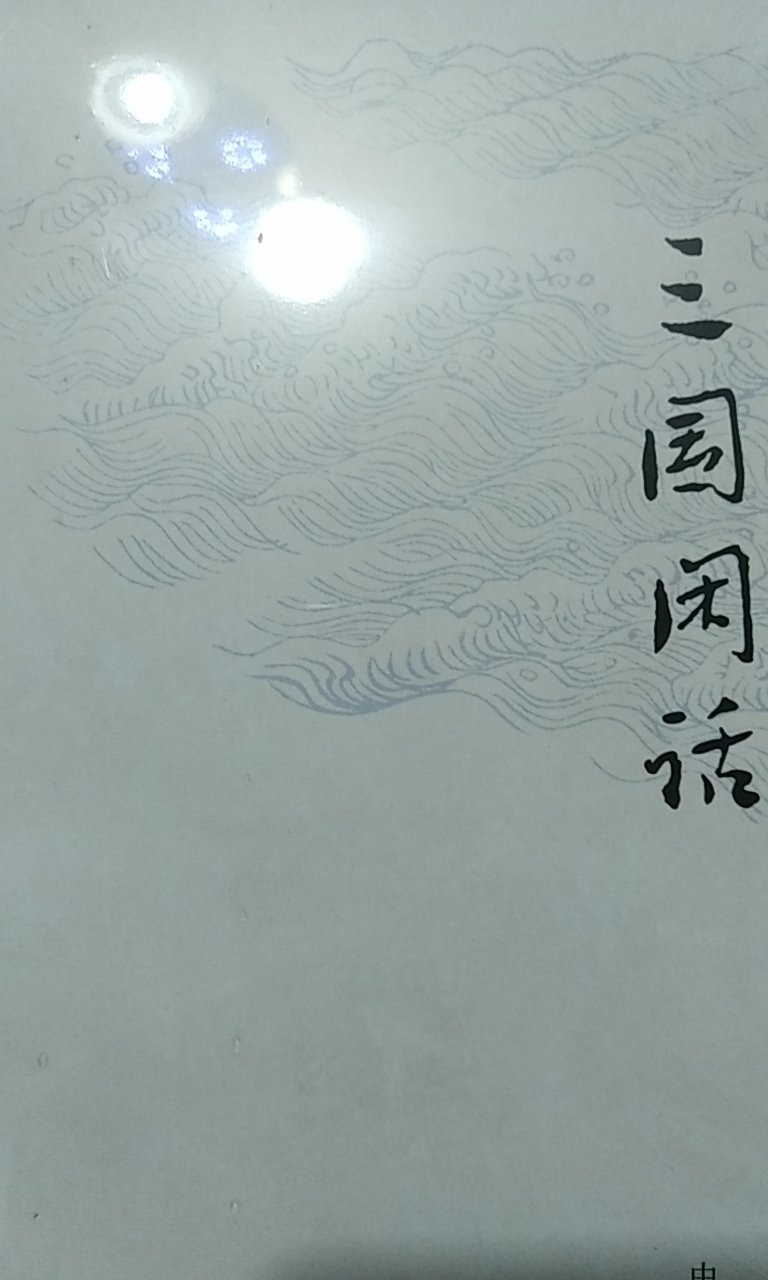 三国闲话
中